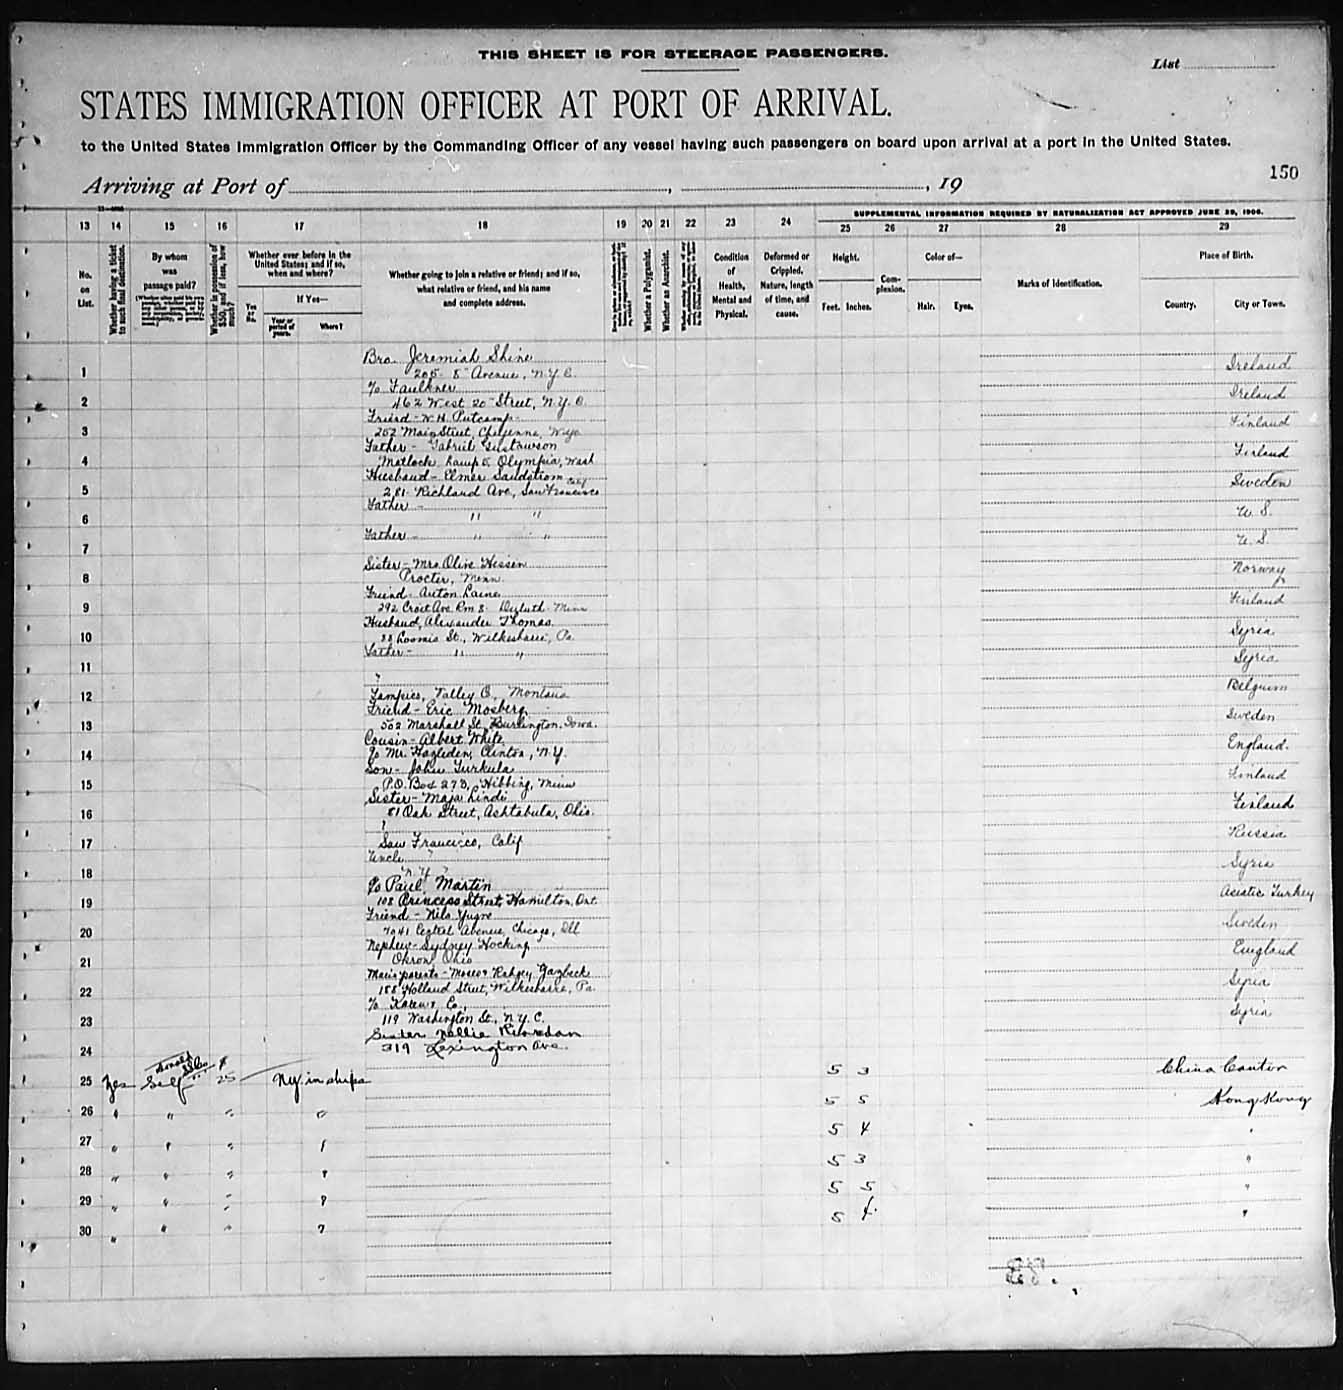 THIS SHEET IS FOR STEERAGE PASSENGERS.
List
STATES IMMIGRATION OFFICER AT PORT OF ARRIVAL.
to the United States Immigration Officer by the Commanding Officer of any vessel having such passengers on board upon arrival at a port in the United States.
Arriving at Port of , , 19
150
SUPPLEMENTAL INFORMATION REQUIRED BY NATURALIZATION ACT APPROVED JUNE 29, 1906.
13 14 15 16 17 18 19 20 21 22 23 24 25 26 27 28 29
No. on List.
Whether having a ticket to such final destination.
By whom was passage paid?
Whether in possession of $50, and if less, how much?
Whether ever before in the United States; and if so, when and where?
Yes or No.
If Yes—
Year or period of years.
Where?
Whether going to join a relative or friend; and if so, what relative or friend, and his name and complete address.
Whether a Polygamist.
Whether an Anarchist.
Condition of Health, Mental and Physical.
Deformed or Crippled. Nature, length of time, and cause.
Height.
Feet. Inches.
Complexion.
Color of—
Hair. Eyes.
Marks of Identification.
Place of Birth.
Country. City or Town.
Bro. Jeremiah Shine
1 205 8" Avenue, N.Y.C. Ireland
c/o Faulkner
2 462 West 20" Street, N.Y.C. Ireland
Friend - W.H. Putcamp
3 252 Main Street, Cheyenne, Wyo Finland
Father - Gabriel Gustawson
4 Matlock, Camp 5, Olympia, Wash Finland
Husband - Elmer Sandstrom
5 281 Richland Ave, San Francisco Calif Sweden
Father -
6 " " U.S.
Father -
7 " " U.S.
Sister - Mrs. Olive Hessen
8 Procter, Minn. Norway
Friend - Anton Laine
9 292 Ave Rm 8 Duluth Minn Finland
Husband, Alexander Thomas
10 38 Loomis St., Wilkesbarre, Pa. Syria
Father - " "
11 Syria
"
12 Valley C. Montana Belgium
Friend - Eric Mosberg
13 502 Marshall St. Burlington, Iowa. Sweden
Cousin - Albert White
14 c/o Mr. Hazleden, Clinton, N.Y. England.
Son - John Turkula
15 P.O. Box 273, Hibbing, Minn Finland
Sister - Maja Lindi
16 81 Oak Street, Ashtabula, Ohio. Finland
17 San Francisco, Calif Russia
Uncle
18 "N.Y." Syria
c/o Paul Martin
19 108 Princess Street, Hamilton, Ont. Asiatic Turkey
Friend - Nils
20 7041 Central Avenue, Chicago, Ill Sweden
Nephew - Sydney Hocking
21 Ohio England
parents -
22 188 Holland Street, Wilkesbarre, Pa. Syria
c/o Co.,
23 119 Washington St., N.Y.C. Syria
Sister Nellie
24 319 Lexington Ave.
25 Yes Self $ 25 N.Y. in ships 5 3 China Canton
26 " " " " 5 5 Hong Kong
27 " " " " 5 4 "
28 " " " " 5 3 "
29 " " " " 5 5 "
30 " " " " 5 4 "